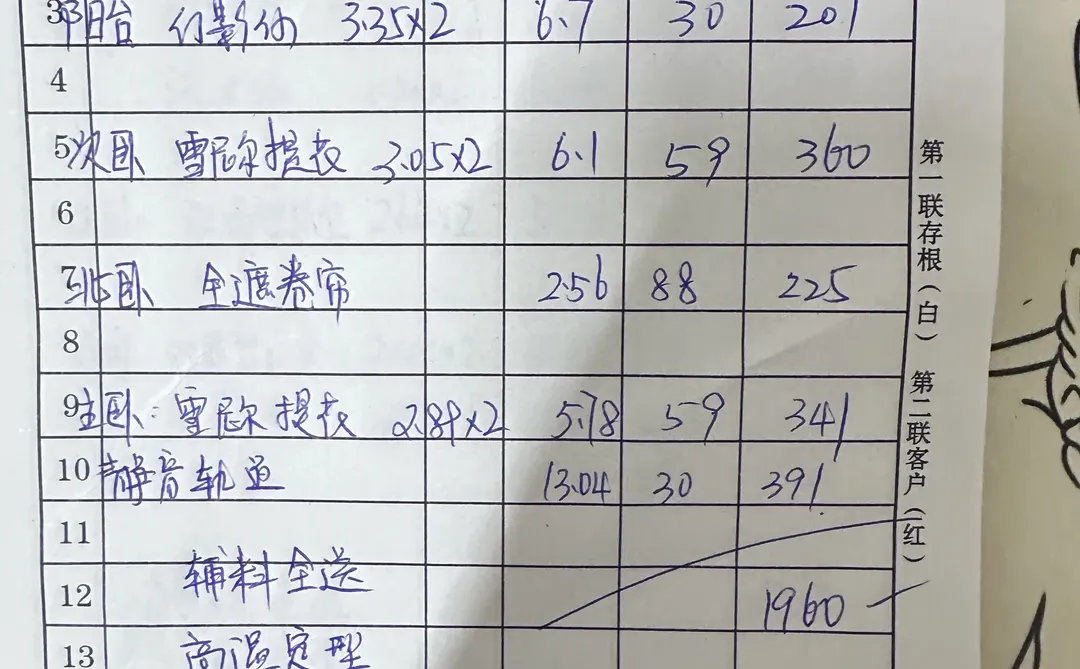 3 阳台 幻影纱 3.35×2 6.7 30 201
4
5 次卧 雪尼尔提花 3.05×2 6.1 59 360
6
7 北卧 全遮卷帘 2.56 88 225
8
9 主卧: 雪尼尔提花 2.89×2 5.78 59 341
10 静音轨道 13.04 30 391
11
辅料全送
12 1960
13 高温定型
第一联存根(白) 第二联客户(红)